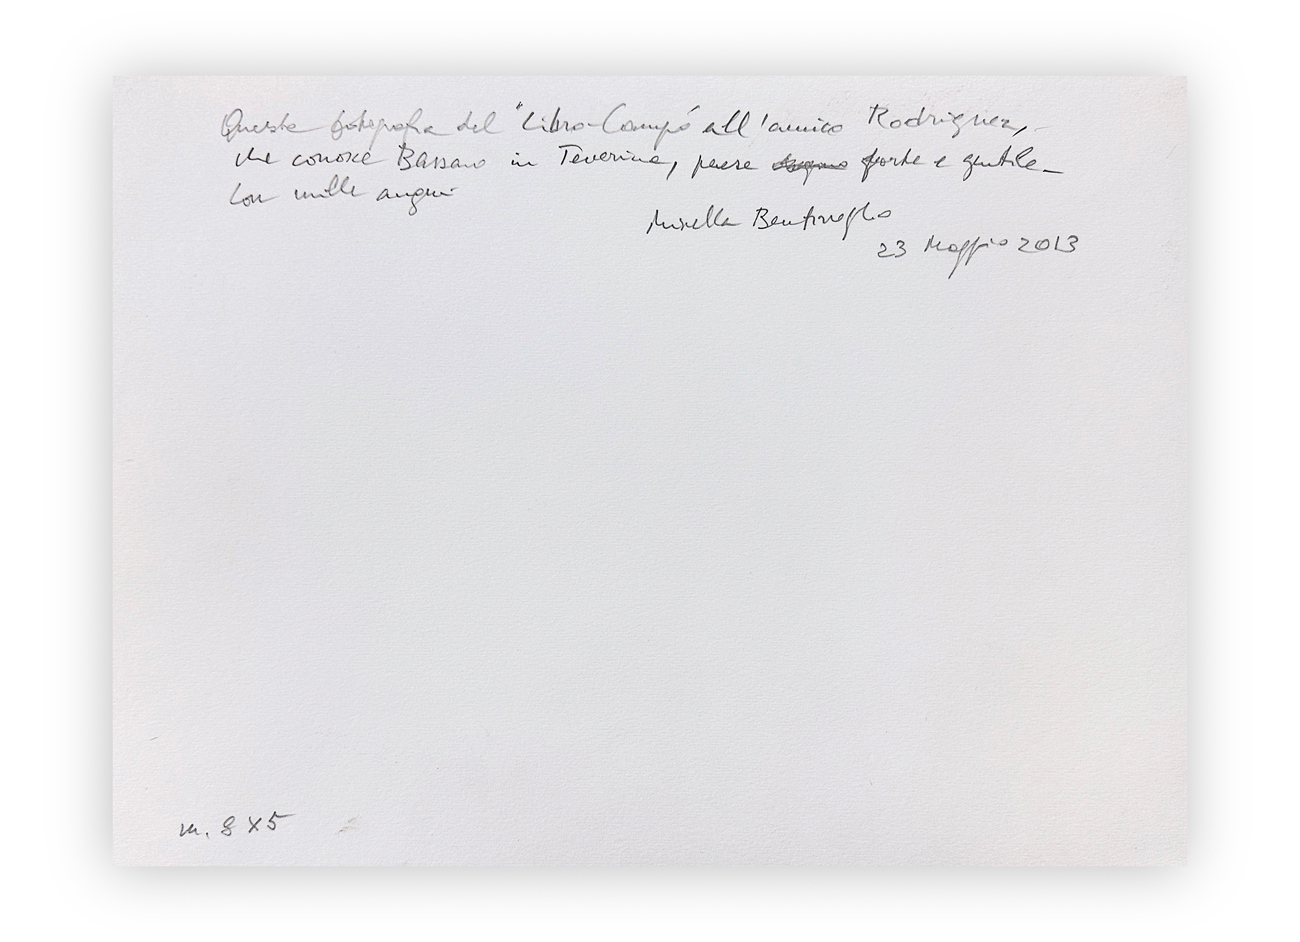 Questa fotografia del "Libro-Campo" all'amico Rodriguez,
che conosce Bassano in Teverina, paese forte e gentile_
Con mille auguri
Mirella Bentivoglio
23 Maggio 2013
m. 8 x 5